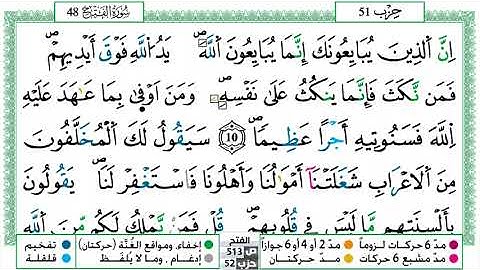 48 سُورَةُ الْفَتْحِ حِزْب 51
اِنَّ اَ۬لذِينَ يُبَايِعُونَكَ إِنَّمَا يُبَايِعُونَ اَ۬للَّهَۖ يَدُ اُ۬للَّهِ فَوْقَ أَيْدِيهِمْۖ
فَمَن نَّكَثَ فَإِنَّمَا يَنكُثُ عَلَىٰ نَفْسِهِۦۖ وَمَنَ اَوْف۪ىٰ بِمَا عَٰهَدَ عَلَيْهِ
اِ۬للَّهَ فَسَنُوتِيهِ أَجْراً عَظِيماٗۖ 10 سَيَقُولُ لَكَ اَ۬لْمُخَلَّفُونَ
مِنَ اَ۬لَاعْرَابِ شَغَلَتْنَآ أَمْوَٰلُنَا وَأَهْلُونَا فَاسْتَغْفِرْ لَنَاۖ يَقُولُونَ
بِأَلْسِنَتِهِم مَّا لَيْسَ فِے قُلُوبِهِمْۖ قُلْ فَمَنْ يَّمْلِكُ لَكُم مِّنَ اَ۬للَّهِ
مدّ 6 حركات لزوماً مدّ 2 أو 4 أو 6 جوازاً الفتح ص 513 حزب 52 إخفاء، ومواقع الغُنَّة (حركتان) تفخيم
مدّ مشبع 6 حركات مدّ حركتان إدغام، وما لا يُلفَظ قلقلة